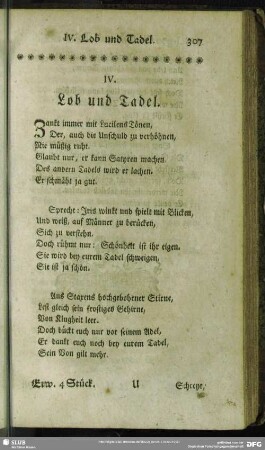 IV. Lob und Tadel. 307
IV.
Lob und Tadel.
Zankt immer mit Lucilens Tönen,
Der, auch die Unschuld zu verhöhnen,
Nie müßig ruht.
Glaubt nur, er kann Satyren machen
Des andern Tadels wird er lachen.
Er schmäht ja gut.
Sprecht: Iris winkt und spielt mit Blicken,
Und weiß, auf Männer zu berücken,
Sich zu verstehn.
Doch rühmt nur: Schönheit ist ihr eigen.
Sie wird bey eurem Tadel schweigen,
Sie ist ja schön.
Aus Staxens hochgebohrner Stirne,
Lest gleich sein frostiges Gehirne,
Von Klugheit leer.
Doch bückt euch nur vor seinem Adel,
Er dankt euch noch bey eurem Tadel,
Sein Von gilt mehr.
Erw. 4 Stück. U Schreyt,
SLUB
DFG